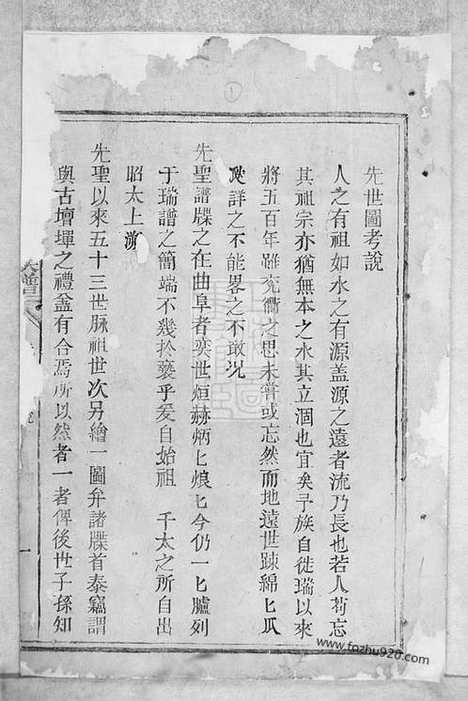 先世圖考說
人之有祖如水之有源盖源之遠者流乃長也若人茍忘
其祖宗亦猶無本之水其立涸也宜矣予族自徙瑞以來
將五百年雖兖衢之思未甞或忘然而地遠世踈綿匕瓜
瓞詳之不能畧之不敢况
先聖譜牒之在曲阜者奕世烜赫炳匕烺匕今仍一匕臚列
于瑞譜之簡端不幾於䙝乎爰自始祖 千太之所自出
昭太上遡
先聖以來五十三世脉祖世次另繪一圖弁諸牒首泰竊謂
與古壇墠之禮盖有合焉所以然者一者俾後世子孫知
一
1
www.fnzhu920.com